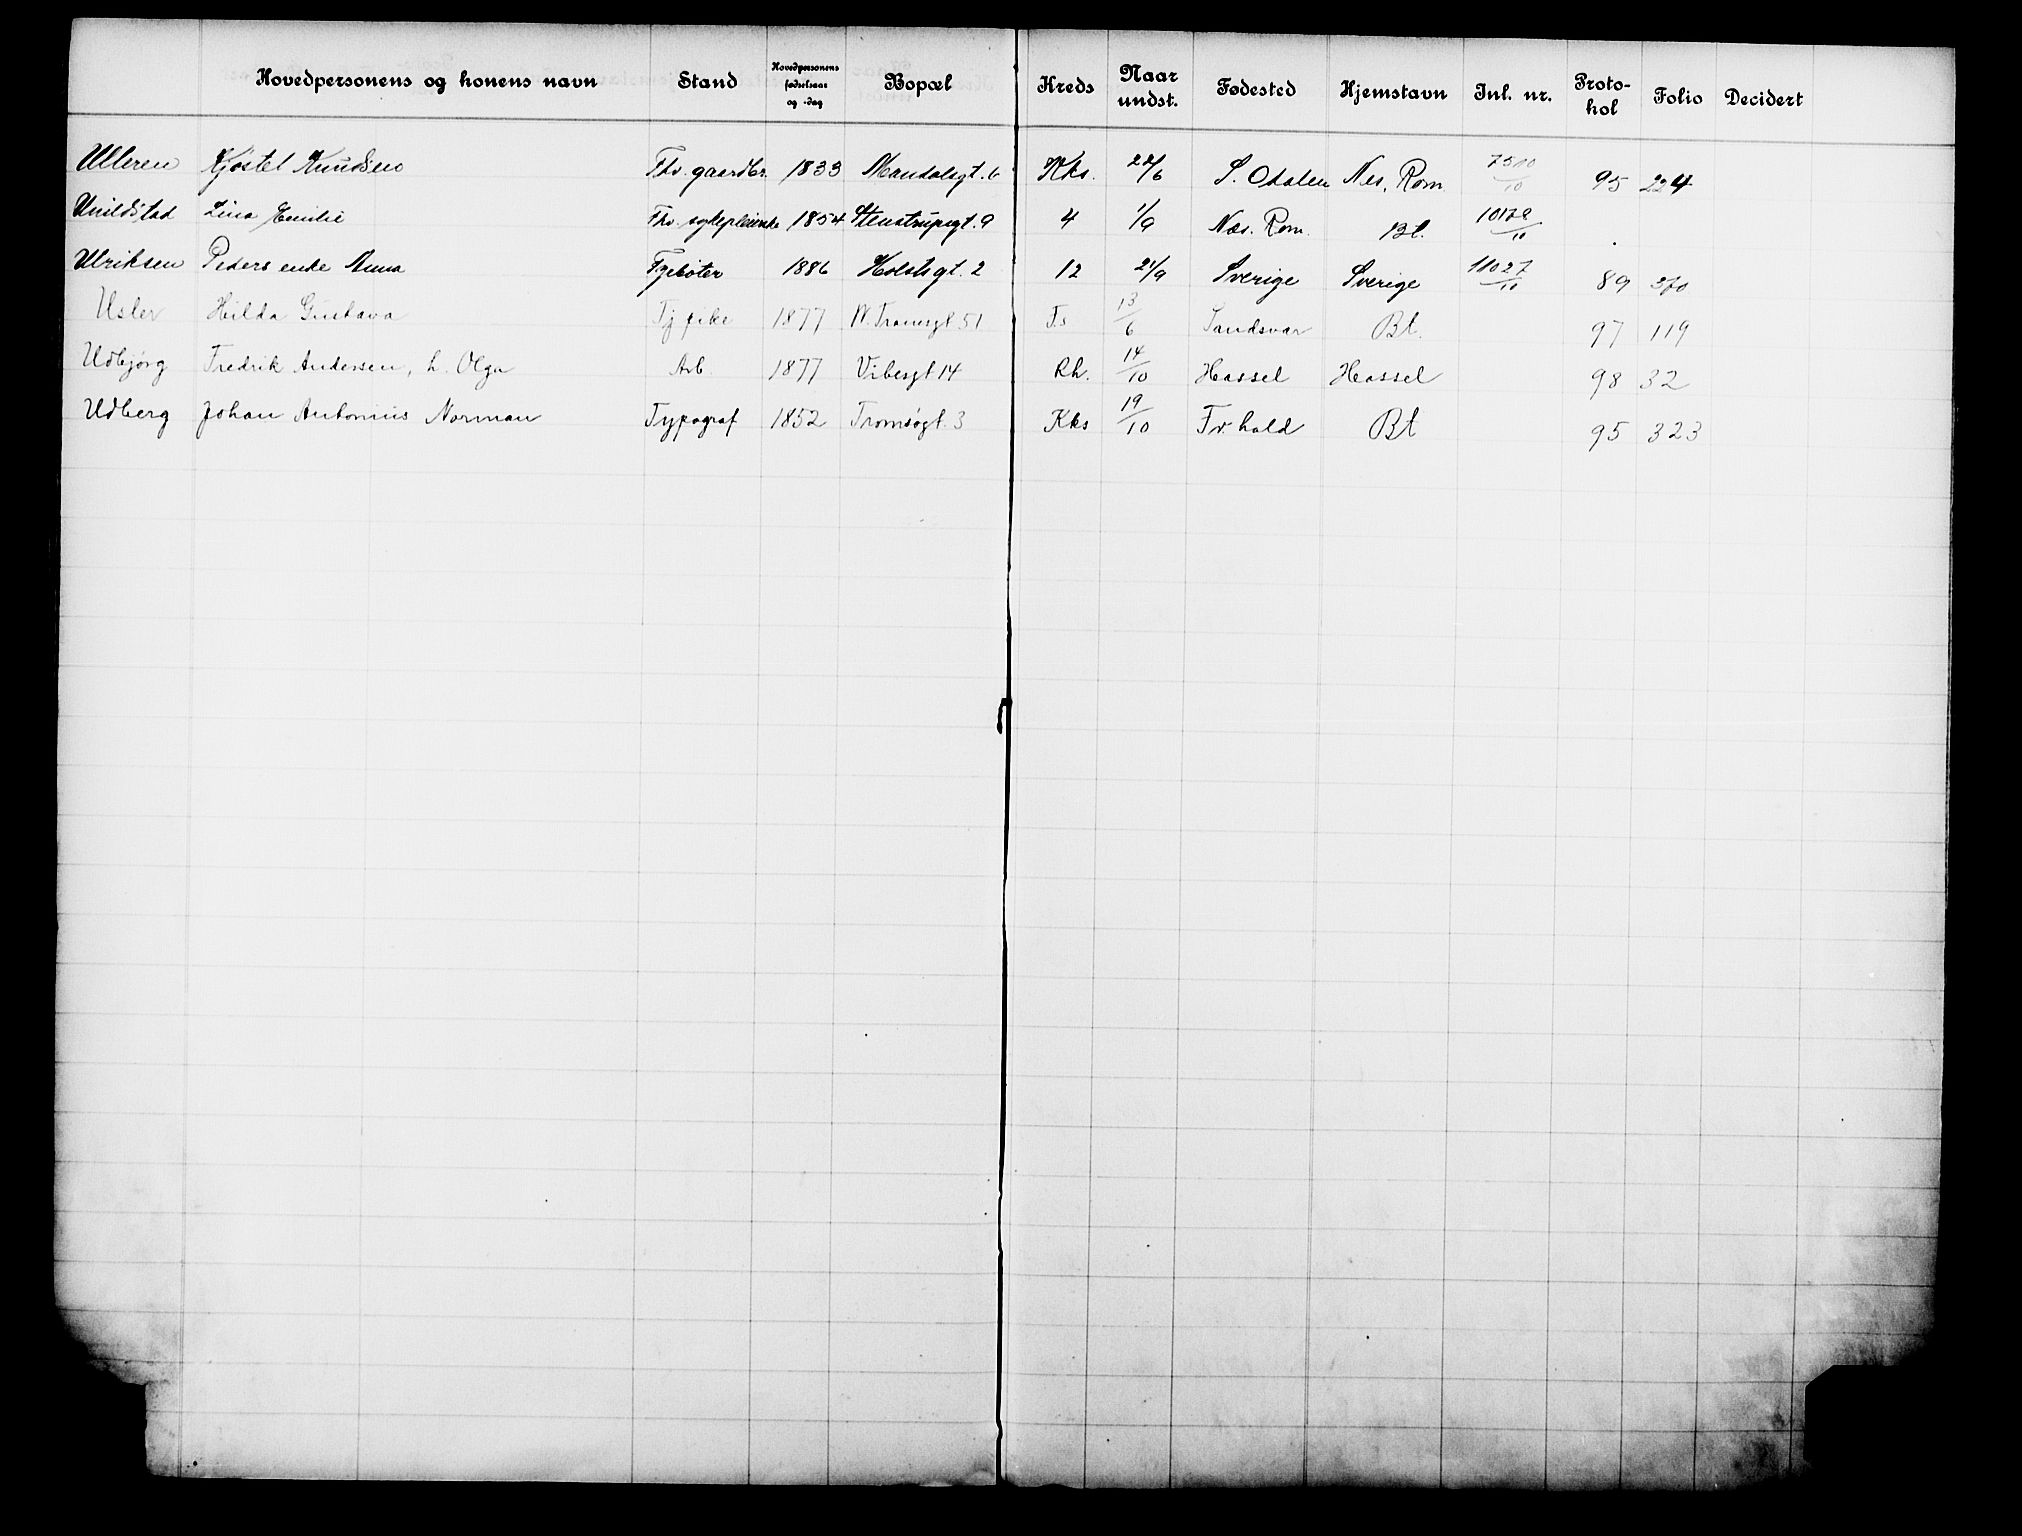 Hovedpersonens og konens navn Stand Hovedpersonens fødselsaar og -dag Bopæl Kreds Naar undst. Fødested Hjemstavn Inl. nr. Proto-kol Folio Decidert
Ulleren Kjøstel Knudsen Fhv. gaardbr. 1833 Mandalsgt. 6 Kks. 22/6 S. Odalen Nes, Rom. 7510/10 95 224
Unildstad Lina Emilie Fhv. sykepleierske 1854 Stenstrupsgt. 9 4 1/9 Næs. Rom. Bt. 10179/10
Ulriksen Peders enke Anna 1886 Holstsgt. 2 12 21/9 Sverige Sverige 11027/10 89 270
Usler Hilda Gustava Tj pike 1877 N. Transgt. 51 Fs 13/6 Sandsvær Bt. 97 119
Udbjørg Fredrik Andersen, h. Olga Arb 1877 Vibesgt 14 Rh. 14/10 Hassel Hassel 98 32
Udberg Johan Antonius Norman Typograf 1852 Tromsøgt. 3 Kks 19/10 Fr. hald Bt 95 323